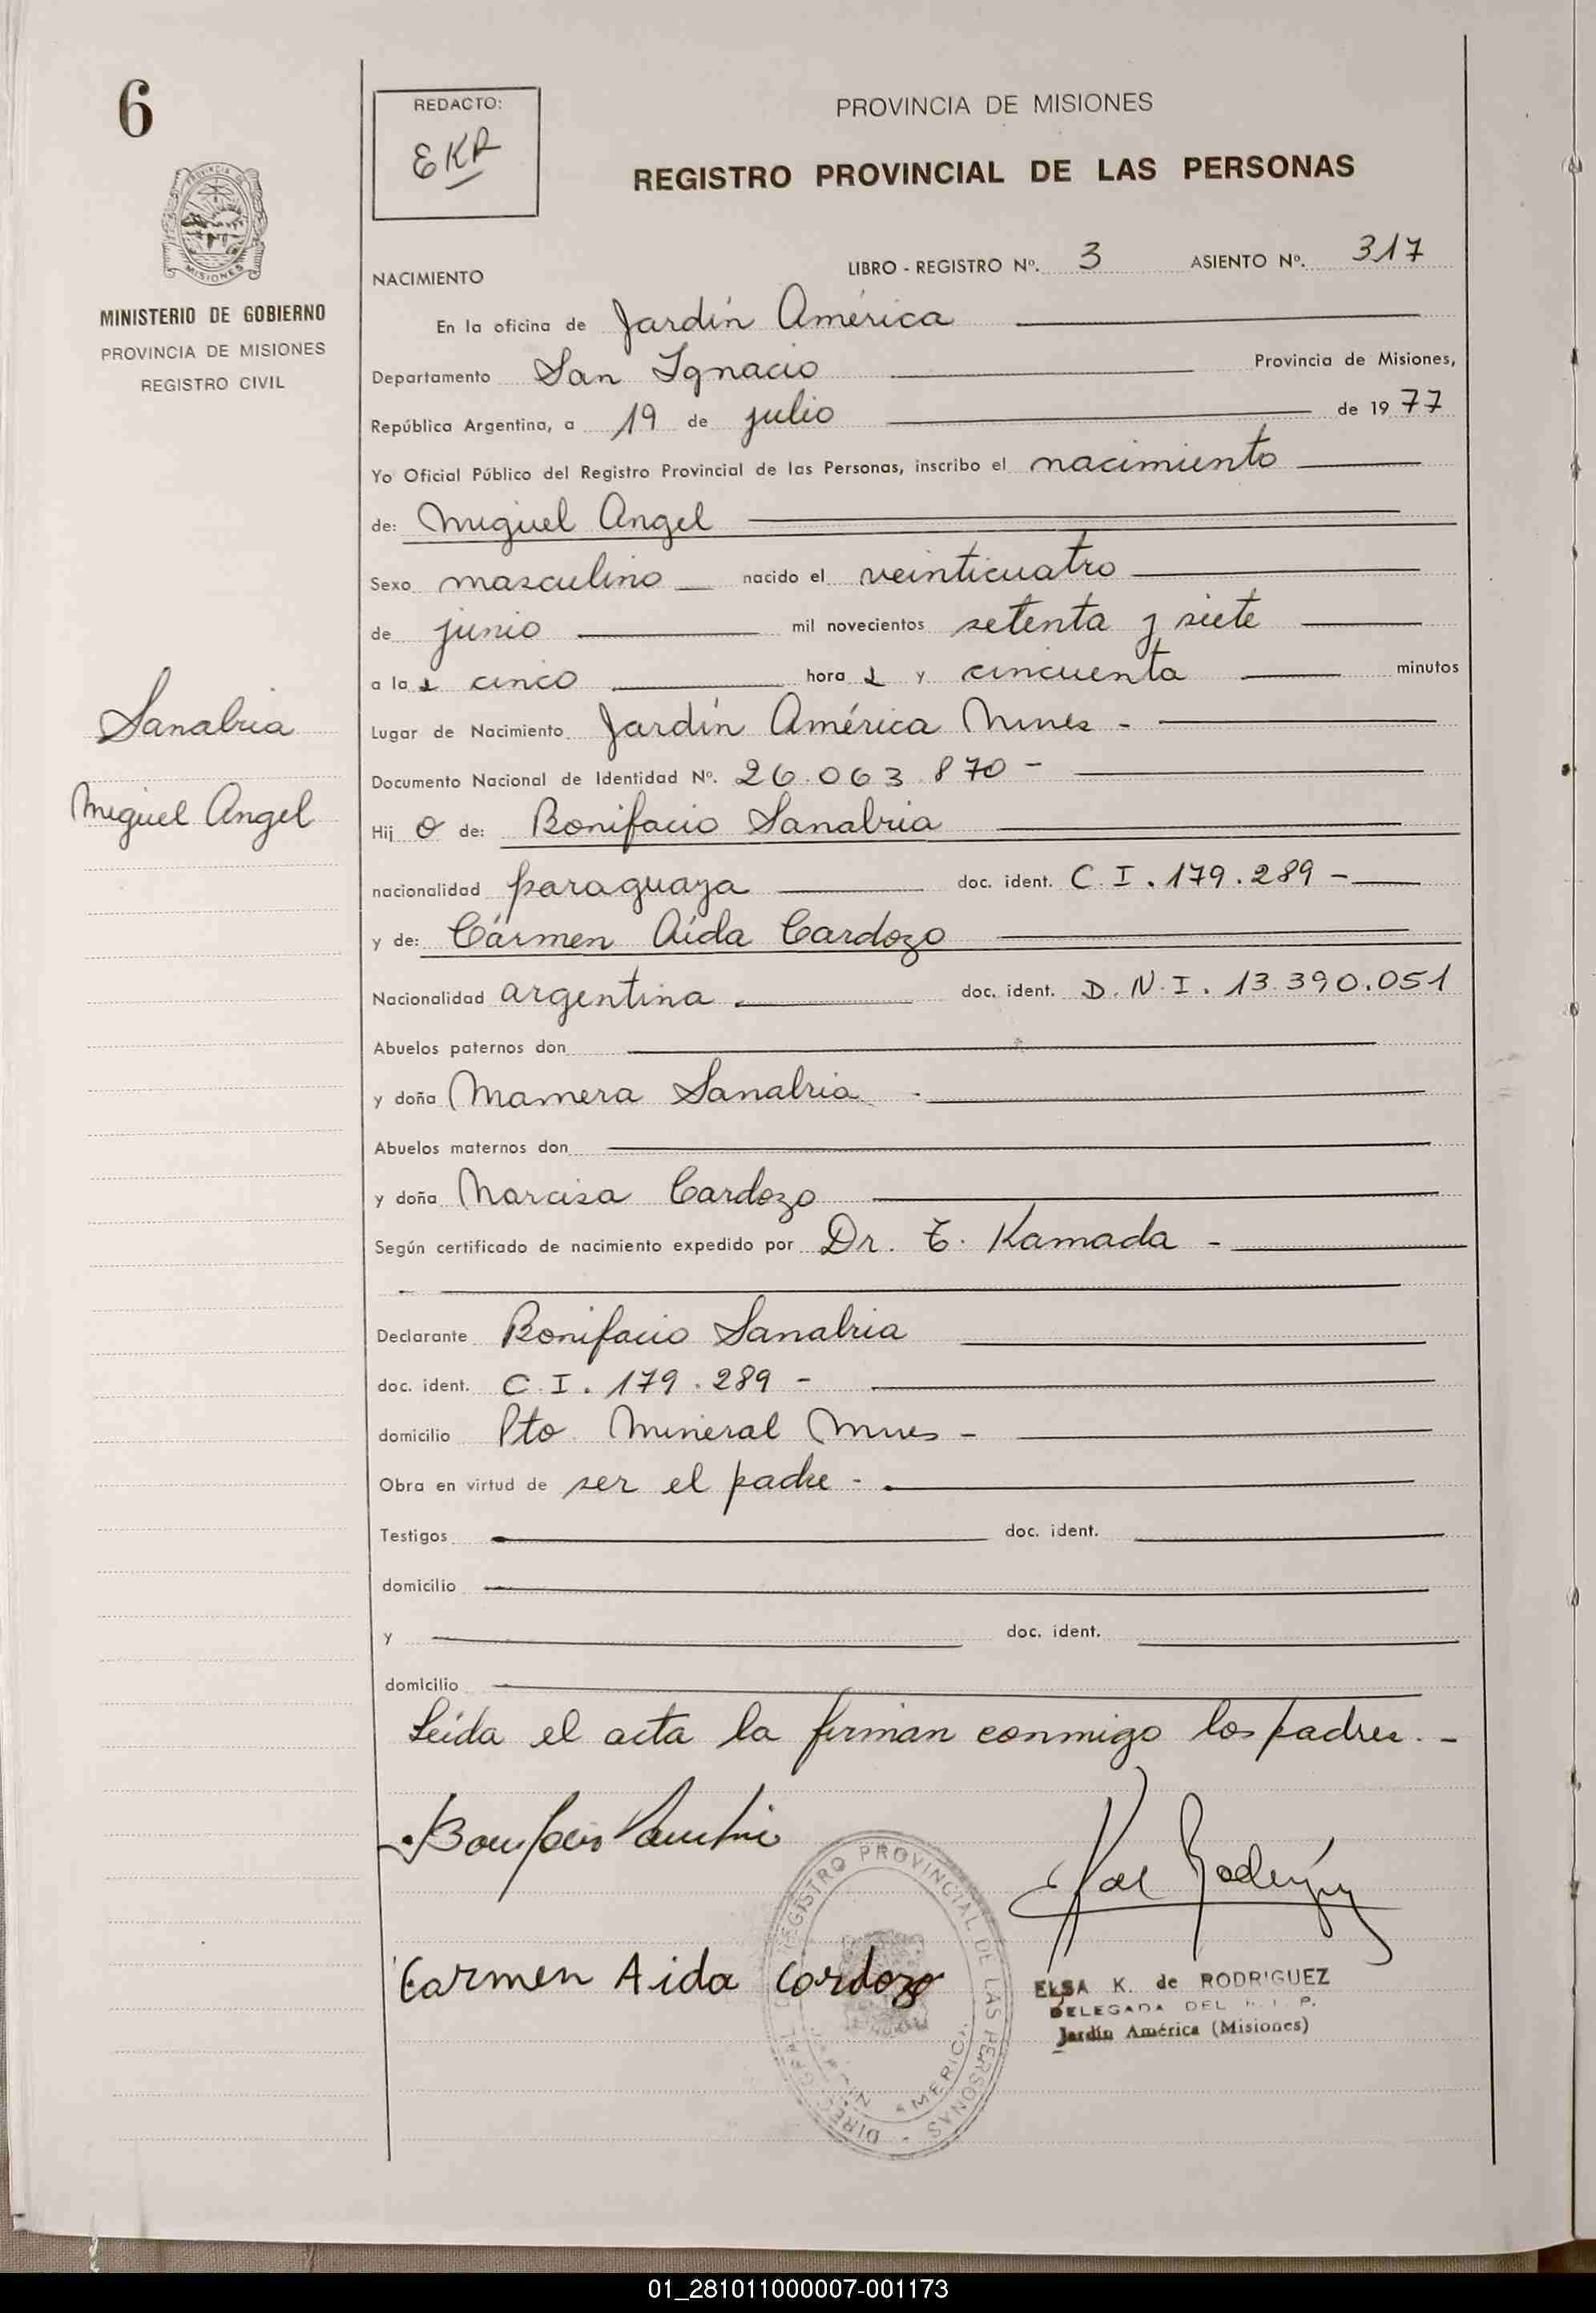 6
REDACTO:
EKR
PROVINCIA DE MISIONES
REGISTRO PROVINCIAL DE LAS PERSONAS
PROVINCIA DE
MISIONES
MINISTERIO DE GOBIERNO
PROVINCIA DE MISIONES
REGISTRO CIVIL
NACIMIENTO LIBRO - REGISTRO Nº. 3 ASIENTO Nº. 317
En la oficina de Jardín América
Departamento San Ignacio Provincia de Misiones,
República Argentina, a 19 de julio de 1977
Yo Oficial Público del Registro Provincial de las Personas, inscribo el nacimiento
de: Miguel Angel
Sexo masculino nacido el veinticuatro
de junio mil novecientos setenta y siete
a las cinco horas y cincuenta minutos
Lugar de Nacimiento Jardín América Mnes -
Documento Nacional de Identidad Nº. 26.063.870 -
Sanabria
Miguel Angel
Hijo de: Bonifacio Sanabria
nacionalidad paraguaya doc. ident. C.I. 179.289 -
y de: Cármen Aída Cardozo
Nacionalidad argentina doc. ident. D.N.I. 13.390.051
Abuelos paternos don
y doña Mamera Sanabria
Abuelos maternos don
y doña Narcisa Cardozo
Según certificado de nacimiento expedido por Dr. T. Kamada -
Declarante Bonifacio Sanabria
doc. ident. C.I. 179.289 -
domicilio Pto. Mineral Mnes -
Obra en virtud de ser el padre -
Testigos doc. ident.
domicilio
y doc. ident.
domicilio
Leída el acta la firman conmigo los padres. -
Carmen Aida Cardozo
REGISTRO PROVINCIAL DE LAS PERSONAS
AMERICA
ELSA K. de RODRIGUEZ
DELEGADA DEL R. P. P.
Jardín América (Misiones)
01_281011000007-001173